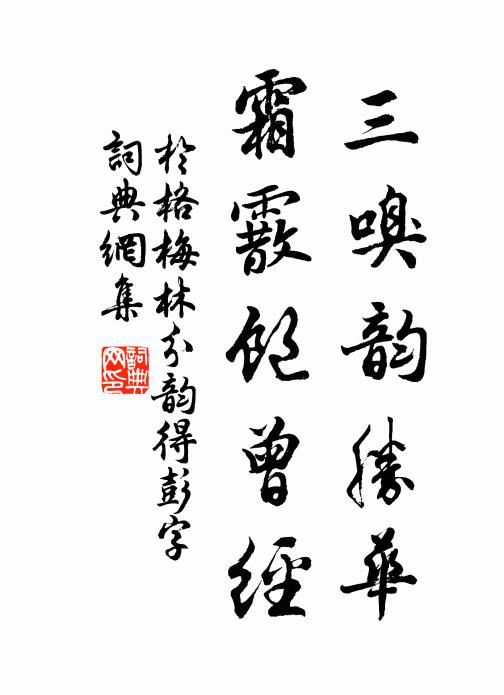 三嗅韵勝華
霜霰飽曾經
於格梅林分韵得彭字
詞典網集
詞典
网印